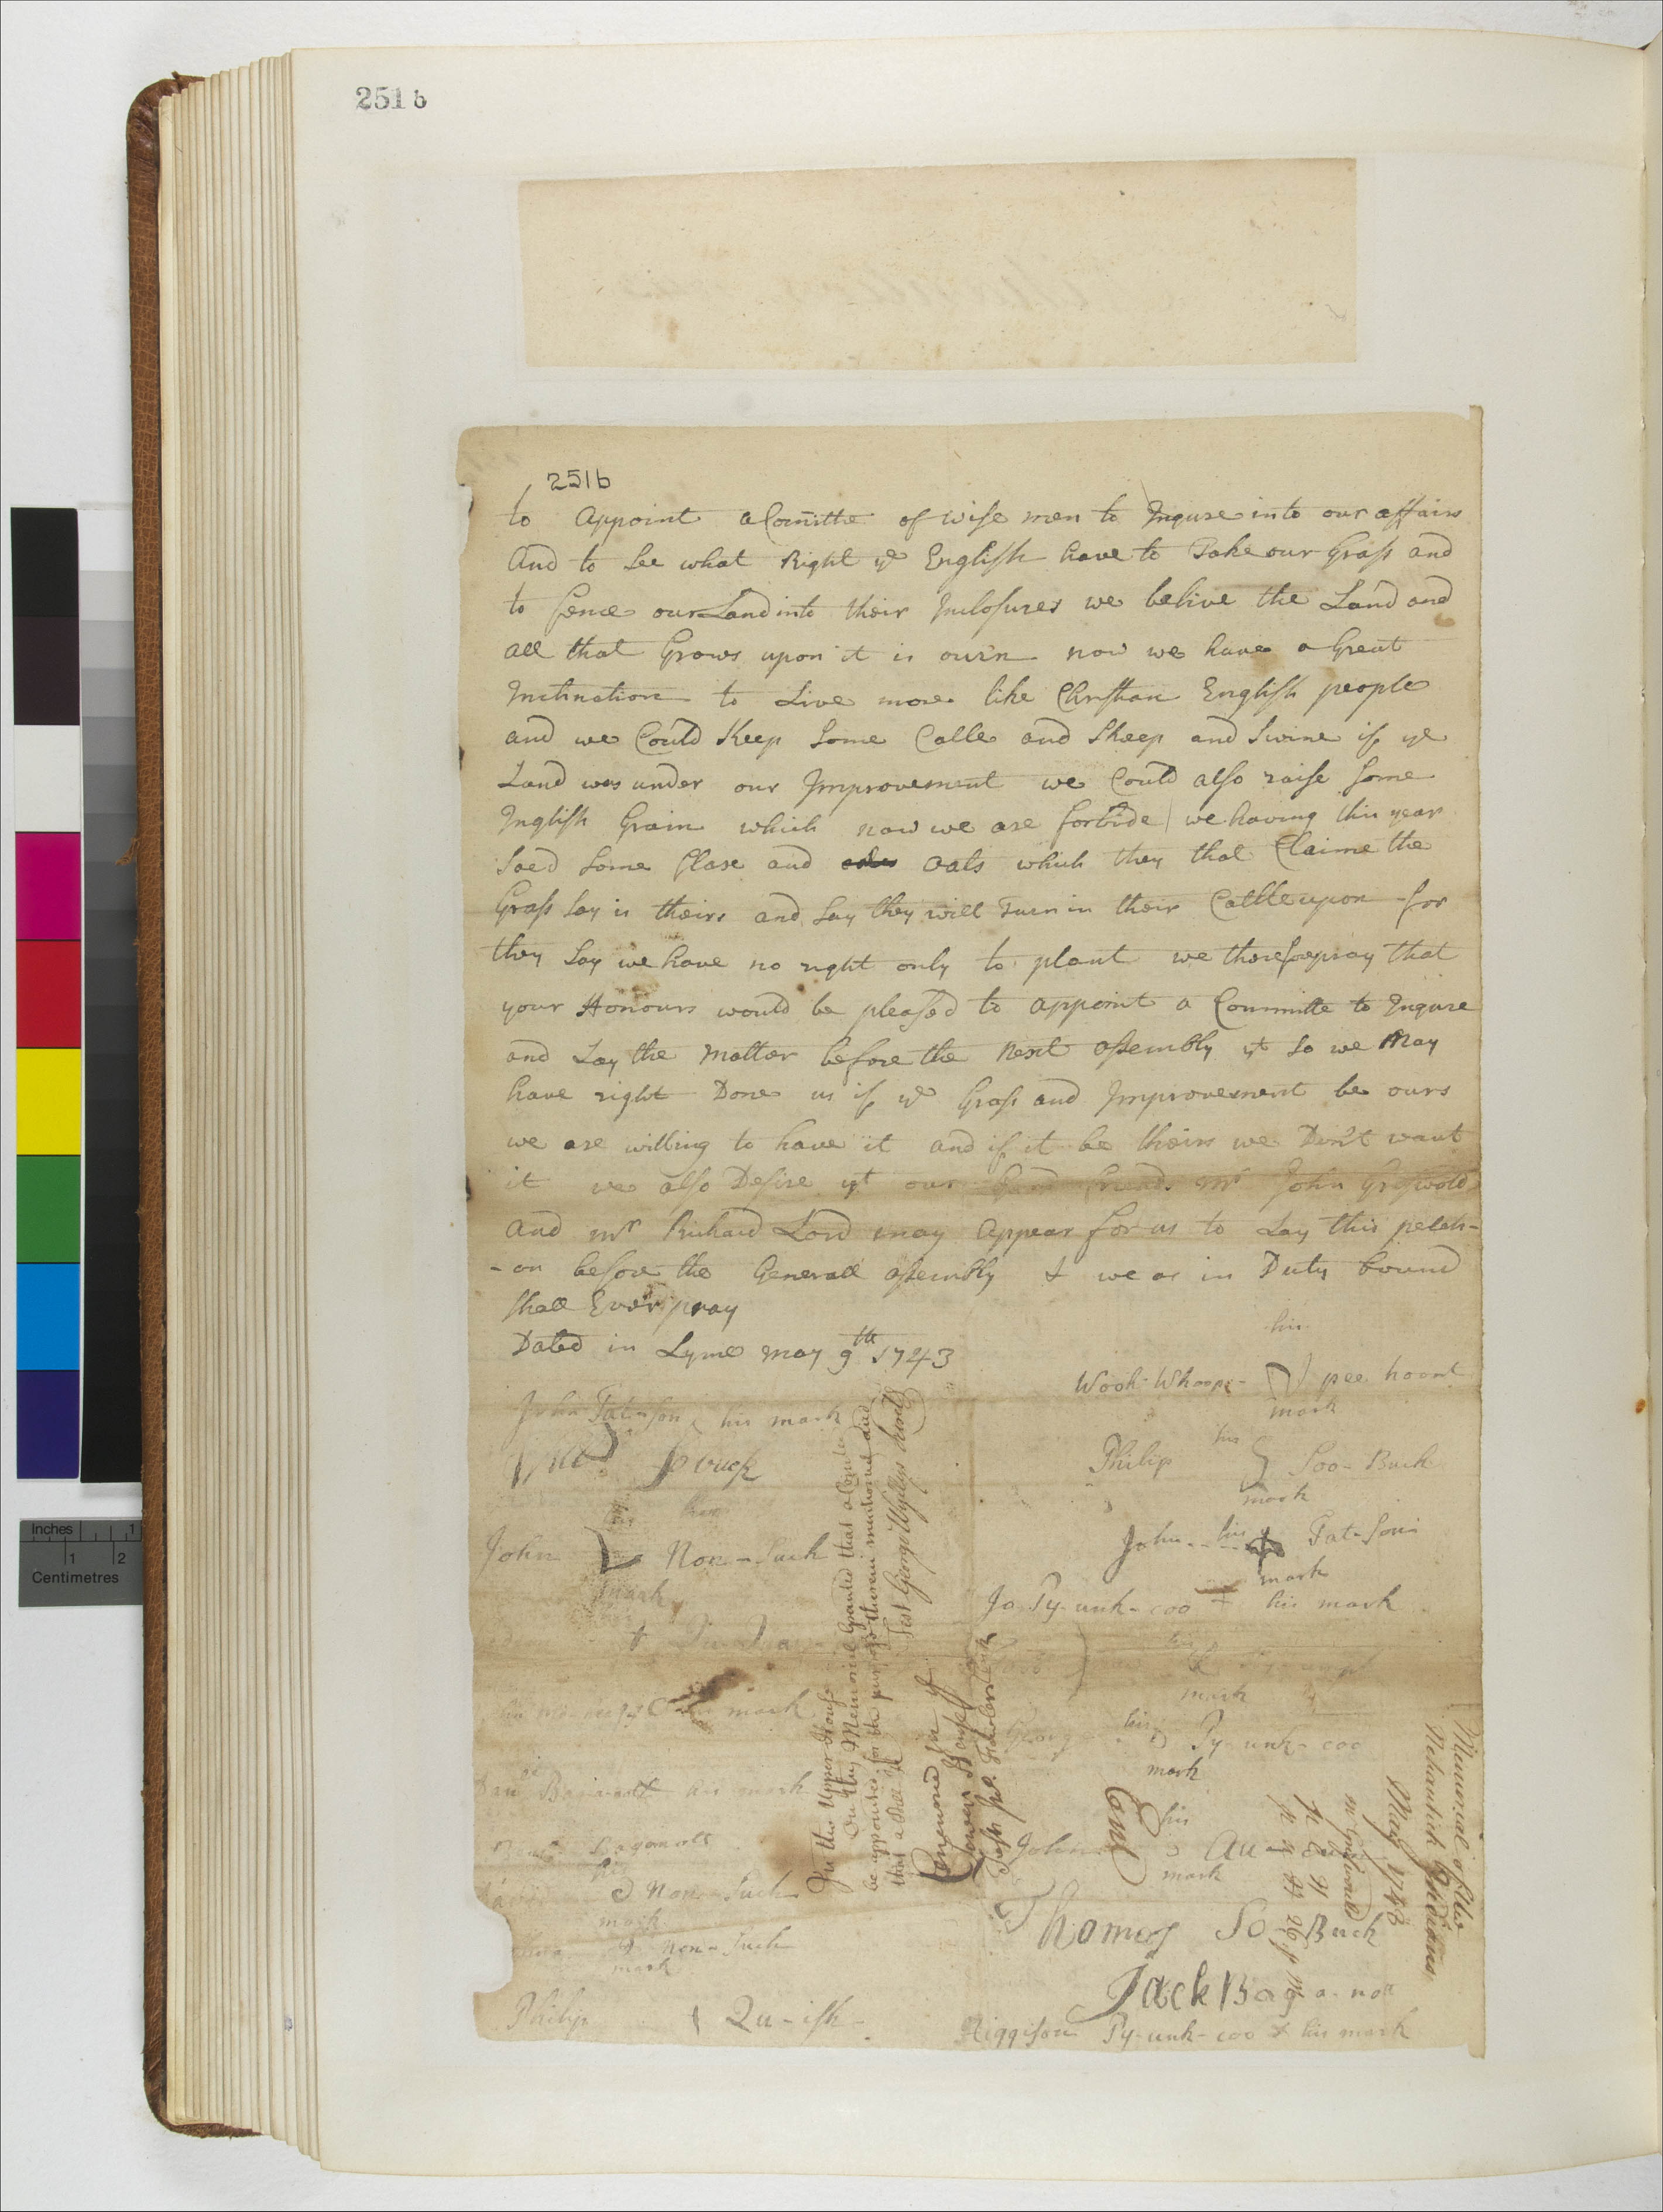 251 b
251b
to Appoint a Comitte of wise men to Inquire into our affairs
And to See what Right ye English have to Take our Grass and
to fence our Land into their Inclosures we belive the Land and
all that Grows upon it is ourn now we have a Great
Inclination to Live more like Christian English people
and we Could Keep Some Catle and Sheep and Swine if ye
Land was under our Improvement we Could also raise Some
Inglish Grain which now we are forbide we having this year
Soed Some flax and oats which they that Claime the
Grass Say is theirs and Say they will Turn in their Cattle upon for
they Say we have no right only to plant we therefore pray that
your Honours would be pleased to appoint a Committe to Inquire
and Lay the matter before the Next assembly yt So we May
have right Done us if ye Grass and Improvement be ours
we are willing to have it and if it be theirs we Don't want
it we also Desire yt our Good friends mr John Griswold
and mr Richard Lord may Appear for us to Lay this peteti-
-on before the Generall assembly & we as in Duty bound
Shall Ever pray
Dated in Lyme may 9th 1743
his
Wook-Whoope- pee hoont
mark
John Tat-Son his mark
his
Philip Soo-Buck
mark
John Non-Such
mark
John his Tat-Son
mark
Jo Py-unk-coo + his mark
mark
his mark
George his Py-unk-coo
mark
his mark
John his
mark
his
Non-Such
mark
Thomas So-Buck
Non-Such
mark
Jack Bag a-nott
Philip Qu-ish
Higgison Py-unk-coo x his mark
In the Upper House
On this Memorial Granted that a Comtee
be appointed for the purpose therein mentioned and
that a Bill &c
Test George Wyllys Secrety
Concurred in ye
Lower House
Memorial of the
Nehantick Indians
May 1743
Inches 1
1 2
Centimetres